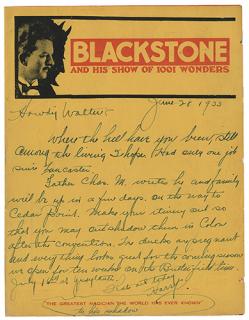 BLACKSTONE
AND HIS SHOW OF 1001 WONDERS
June 28 1933
Howdy Walter:
Where the hell have you been, still
among the living I hope. Had
one job
since Lancaster.
Father Chas. M. writes he and family
will be up in a few days, on the way to
Cedar Point. Make your timing so
that you may
them in Colon
after the convention. The ducks are pregnant
and everything looks good for the coming season
we open for ten weeks on the Butterfield time
July
Harry.
"THE GREATEST MAGICIAN THE WORLD HAS EVER KNOWN"
to his shadow